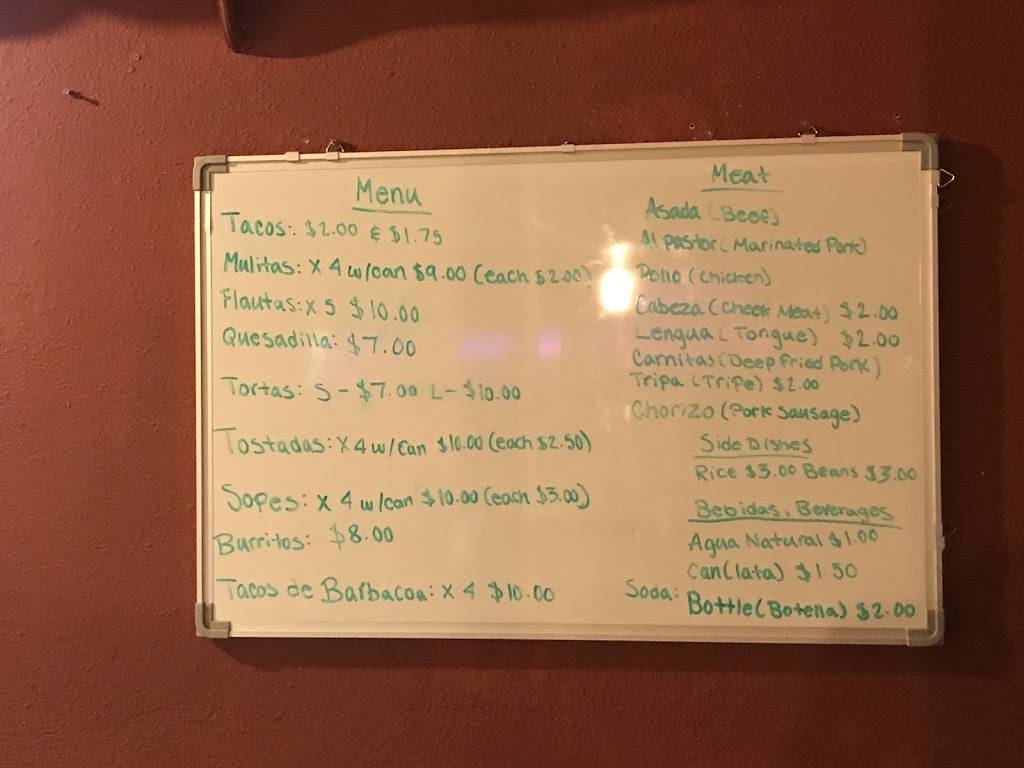 Menu
Tacos: $2.00 & $1.75
Mulitas: x 4 w/can $9.00 (each $2.00)
Flautas: x 5 $10.00
Quesadilla: $7.00
Tortas: S - $7.00 L - $10.00
Tostadas: x 4 w/can $10.00 (each $2.50)
Sopes: x 4 w/can $10.00 (each $3.00)
Burritos: $8.00
Tacos de Barbacoa: x 4 $10.00
Meat
Asada (Beef)
Al pastor (Marinated Pork)
Pollo (chicken)
Cabeza (Cheek Meat) $2.00
Lengua (Tongue) $2.00
Carnitas (Deep Fried Pork)
Tripa (Tripe) $2.00
Chorizo (Pork Sausage)
Side Dishes
Rice $3.00 Beans $3.00
Bebidas, Beverages
Agua Natural $1.00
Can (lata) $1.50
Soda: Bottle (Botella) $2.00